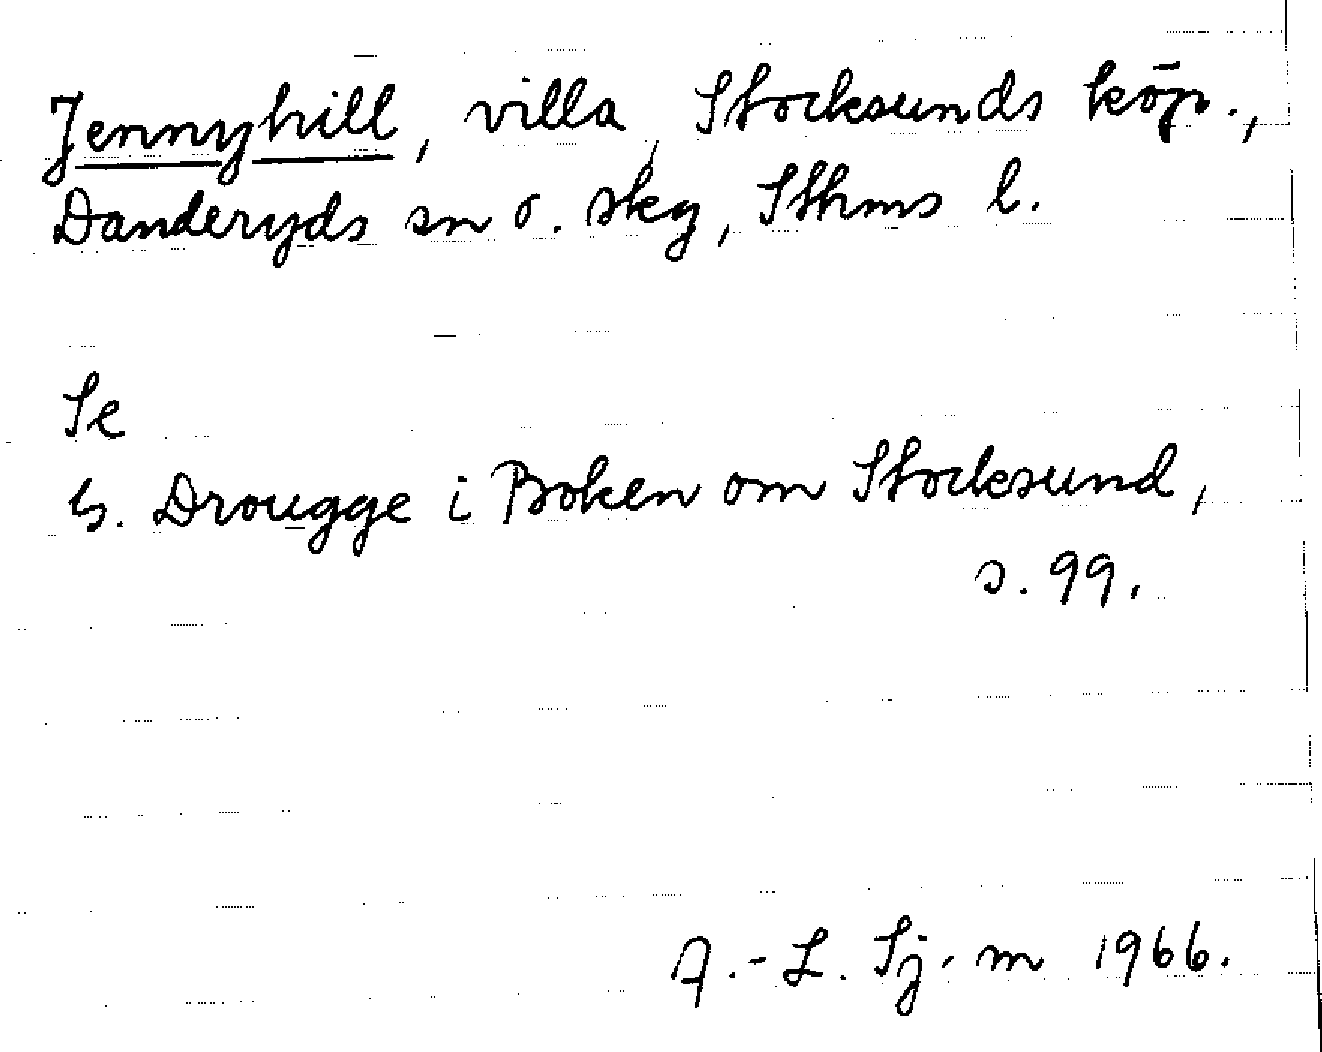 Jennyhill, villa, Stocksunds köp.,
Danderyds sn o. skg, Sthms l.
Se
G. Drougge i Boken om Stocksund,
s. 99.
A.-L. Sj.m 1966.